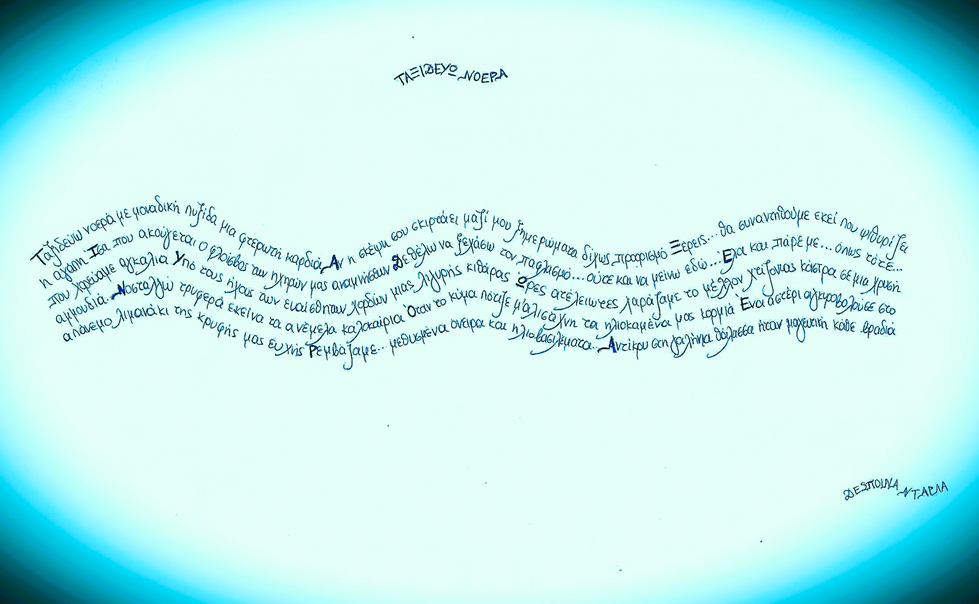 ΤΑΞΙΔΕΥΩ ΝΟΕΡΑ
Ταξιδεύω νοερά με μοναδική πυξίδα μια φτερωτή καρδιά Αν η σκέψη σου σκιρτάει μαζί μου ξημερώματα δίχως προορισμό Ξέρεις...θα συναντηθούμε εκεί που ψιθυρίζει
η αγάπη Ίσα που ακούγεται ο φλοίσβος των μας αναμνήσεων Δε θέλω να ξεχάσω τον παφλασμό...ούτε και να μείνω εδώ...Έλα και πάρε με...όπως τότε...
που αγκαλιά Υπό τους ήχους των ευαίσθητων χορδών μιας λιγυρής κιθάρας Ώρες ατέλειωτες χαράζαμε το μέλλον χτίζοντας κάστρα σε μια χρυσή
αμμουδιά. Νοσταλγώ τρυφερά εκείνα τα ανέμελα καλοκαίρια Όταν το κύμα πότιζε μ'αλισάχνη τα ηλιοκαμένα μας κορμιά Ένα αστέρι στο
απάνεμο λιμανάκι της κρυφής μας ευχής Ρεμβάζαμε.. μεθυσμένα όνειρα και ηλιοβασιλέματα...Αντίκρυ στη γαλήνια θάλασσα ήταν μαγευτική κάθε βραδιά
ΔΕΣΠΟΙΝΑ ΝΤΑΡΛΑ